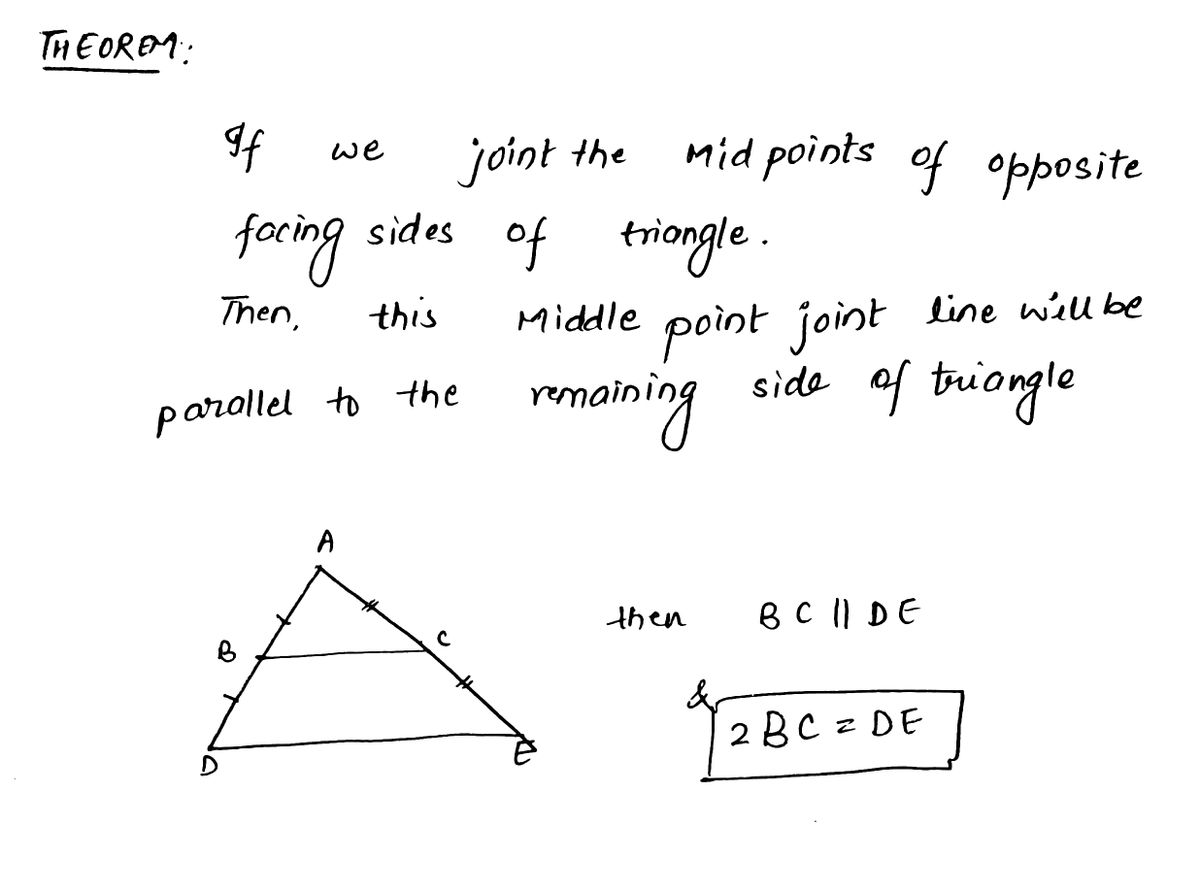 THEOREM:
If we joint the Midpoints of opposite
facing sides of triangle.
Then, this Middle point joint line will be
parallel to the remaining side of triangle
A
then BC || DE
B C
&
2BC = DE
D E